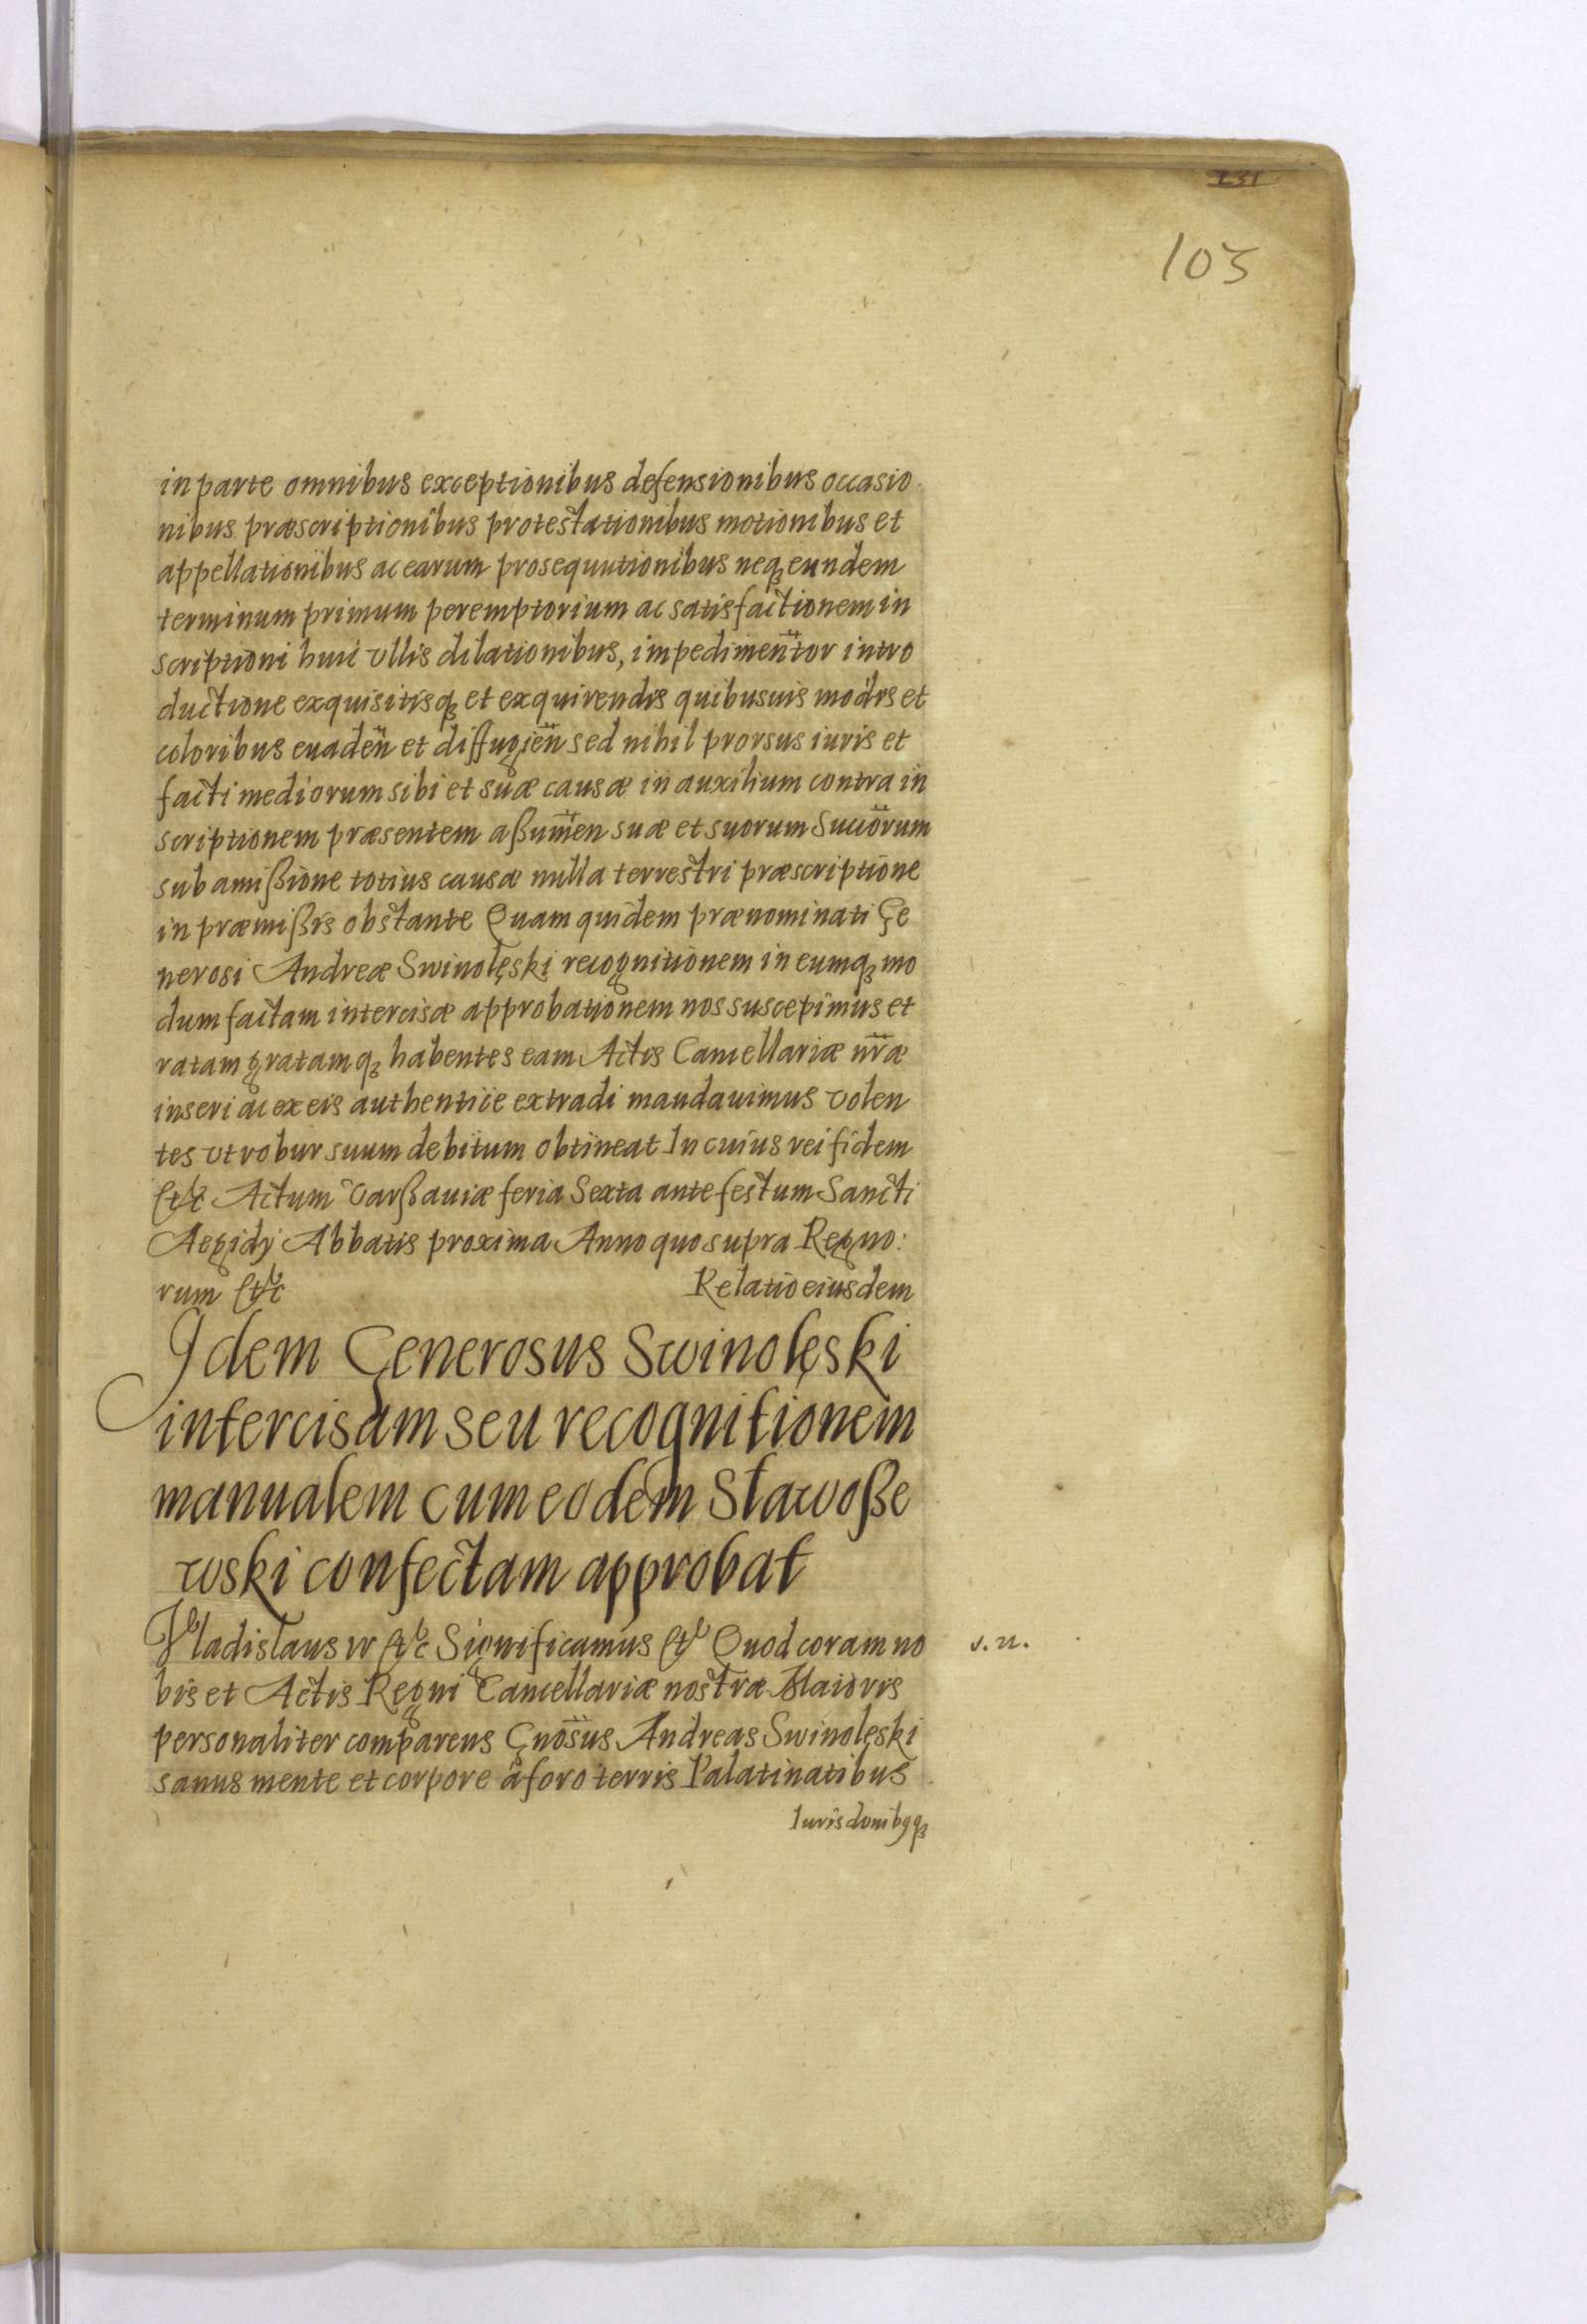 103
in parte omnibus exceptionibus defensionibus occasio
nibus præscriptionibus protestationibus motionibus et
appellationibus ac earum prosequutionibus neq₃ eundem
terminum primum peremptorium ac satisfactionem in
scriptioni huic vllis dilationibus, impedimentor intro
ductione exquisitisq₃ et exquirendis quibusuis modis et
coloribus euaden et diffugien sed nihil prorsus iuris et
facti mediorum sibi et suæ causæ in auxilium contra in
scriptionem præsentem aßumen suæ et suorum Succorum
sub amißione totius causæ nulla terrestri præscriptione
in præmißis obstante Quam quidem prænominati Ge
nerosi Andreæ Swinolęski recognitionem in eumq₃ mo
dum factam intercisæ approbationem nos suscepimus et
ratam gratamq₃ habentes eam Actis Cancellariæ nræ
inseri ac ex eis authentice extradi mandauimus volen
tes vt robur suum debitum obtineat In cuius rei fidem
etc Actum Varßauiæ feria Sexta ante festum Sancti
Aegidy Abbatis proxima Anno quo supra Regno:
rum etc Relatio eiusdem
Idem Generosus Swinolęski
intercisam seu recognitionem
manualem cum eodem Stawoße
wski confectam approbat
Vladislaus IV etc Significamus etc Quod coram no
v. n.
bis et Actis Regni Cancellariæ nostræ Maioris
personaliter comparens Gnosus Andreas Swinolęski
sanus mente et corpore â foro terris Palatinatibus
Iurisdonibqq₃